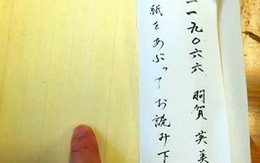 一一九〇六六、羽賀 英美
紙をあぶってお読み下